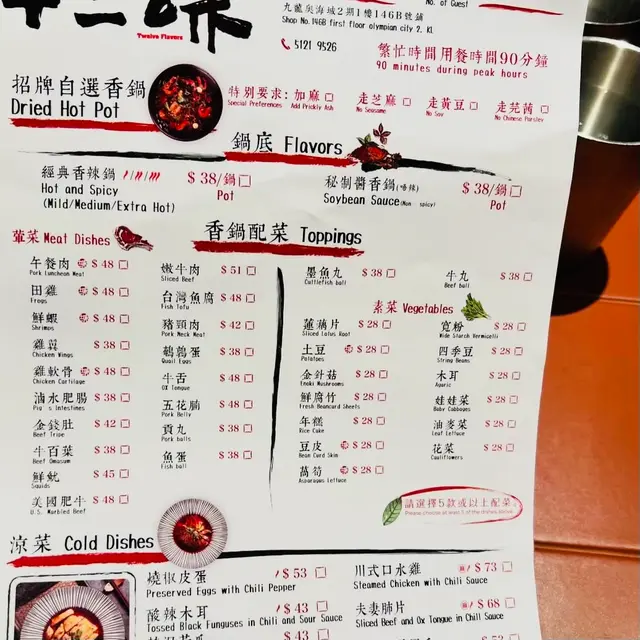 十二味
Twelve Flavors
No. of Guest
九龍奧海城2期1樓146B號舖
Shop No.146B first floor olympian city 2, KL
5121 9526
繁忙時間用餐時間90分鐘
90 minutes during peak hours
招牌自選香鍋
Dried Hot Pot
特別要求: 加麻 走芝麻 走黃豆 走芫茜
Special Preferences Add Prickly Ash No Seasame No Soy No Chinese Parsley
鍋底 Flavors
經典香辣鍋 $ 38/鍋
Hot and Spicy Pot
(Mild/Medium/Extra Hot)
秘制醬香鍋(唔辣) $ 38/鍋
Soybean Sauce(Non spicy) Pot
香鍋配菜 Toppings
葷菜 Meat Dishes
午餐肉 $ 48
Pork Luncheon Meat
田雞 $ 48
Frogs
鮮蝦 $ 48
Shrimps
雞翼 $ 38
Chicken Wings
雞軟骨 $ 48
Chicken Cartilage
滷水肥腸 $ 38
Pig's Intestines
金錢肚 $ 42
Beef Tripe
牛百葉 $ 38
Beef Omasum
鮮魷 $ 45
Squids
美國肥牛 $ 48
U.S. Marbled Beef
嫩牛肉 $ 51
Sliced Beef
台灣魚腐 $ 48
Fish Tofu
豬頸肉 $ 42
Pork Neck Meat
鵪鶉蛋 $ 38
Quail Eggs
牛舌 $ 48
OX Tongue
五花腩 $ 48
Pork Belly
貢丸 $ 38
Pork balls
魚蛋 $ 38
Fish ball
墨魚丸 $ 38
Cuttlefish ball
牛丸 $ 38
Beef ball
素菜 Vegetables
蓮藕片 $ 28
Sliced Lotus Root
土豆 $ 28
Potatoes
金針菇 $ 28
Enoki Mushrooms
鮮腐竹 $ 28
Fresh Beancurd Sheets
年糕 $ 28
Rice Cake
豆皮 $ 28
Bean Curd Skin
萵筍 $ 28
Asparagus Lettuce
寬粉 $ 28
Wide Starch Vermicelli
四季豆 $ 28
String Beans
木耳 $ 28
Agaric
娃娃菜 $ 28
Baby Cabbages
油麥菜 $ 28
Leaf Lettuce
花菜 $ 28
Cauliflowers
請選擇5款或以上配菜
Please choose at least 5 of the dishes above
涼菜 Cold Dishes
燒椒皮蛋 $ 53
Preserved Eggs with Chili Pepper
酸辣木耳 $ 43
Black Funguses in Chili and Sour Sauce
$ 43
川式口水雞 $ 73
Steamed Chicken with Chili Sauce
夫妻肺片 $ 68
Sliced Beef and Ox Tongue in Chili Sauce